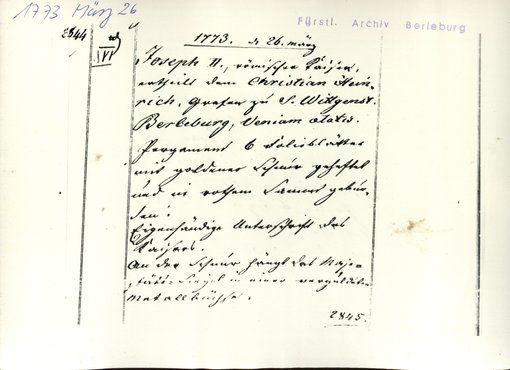 1773 März 26
Fürstl. Archiv Berleburg
2844
1773. d 26. März
Joseph II., römischer Kaiser,
ertheilt dem Christian Hein-
rich, Grafen zu S. Wittgenst.
Berleburg, Veniam aetatis.
Pergament 6 Folioblätter
mit goldener Schnur geheftet
und in rothem Sammt gebun-
den.
Eigenhändige Unterschrift des
Kaisers.
An der Schnur hängt das Maje-
stäts-Siegel in einer vergüldeten
Metallbüchse.
2845.